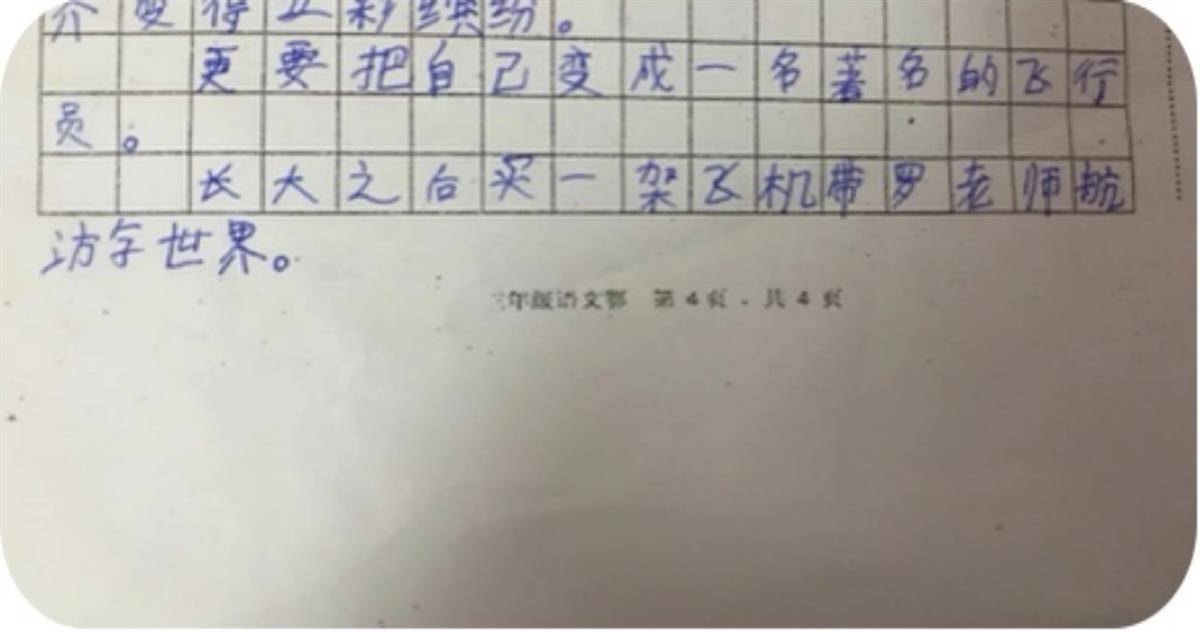 介变得五彩缤纷。
更要把自己变成一名著名的飞行
员。
长大之后买一架飞机带罗老师航
访宇世界。
三年级语文 第4页.共4页